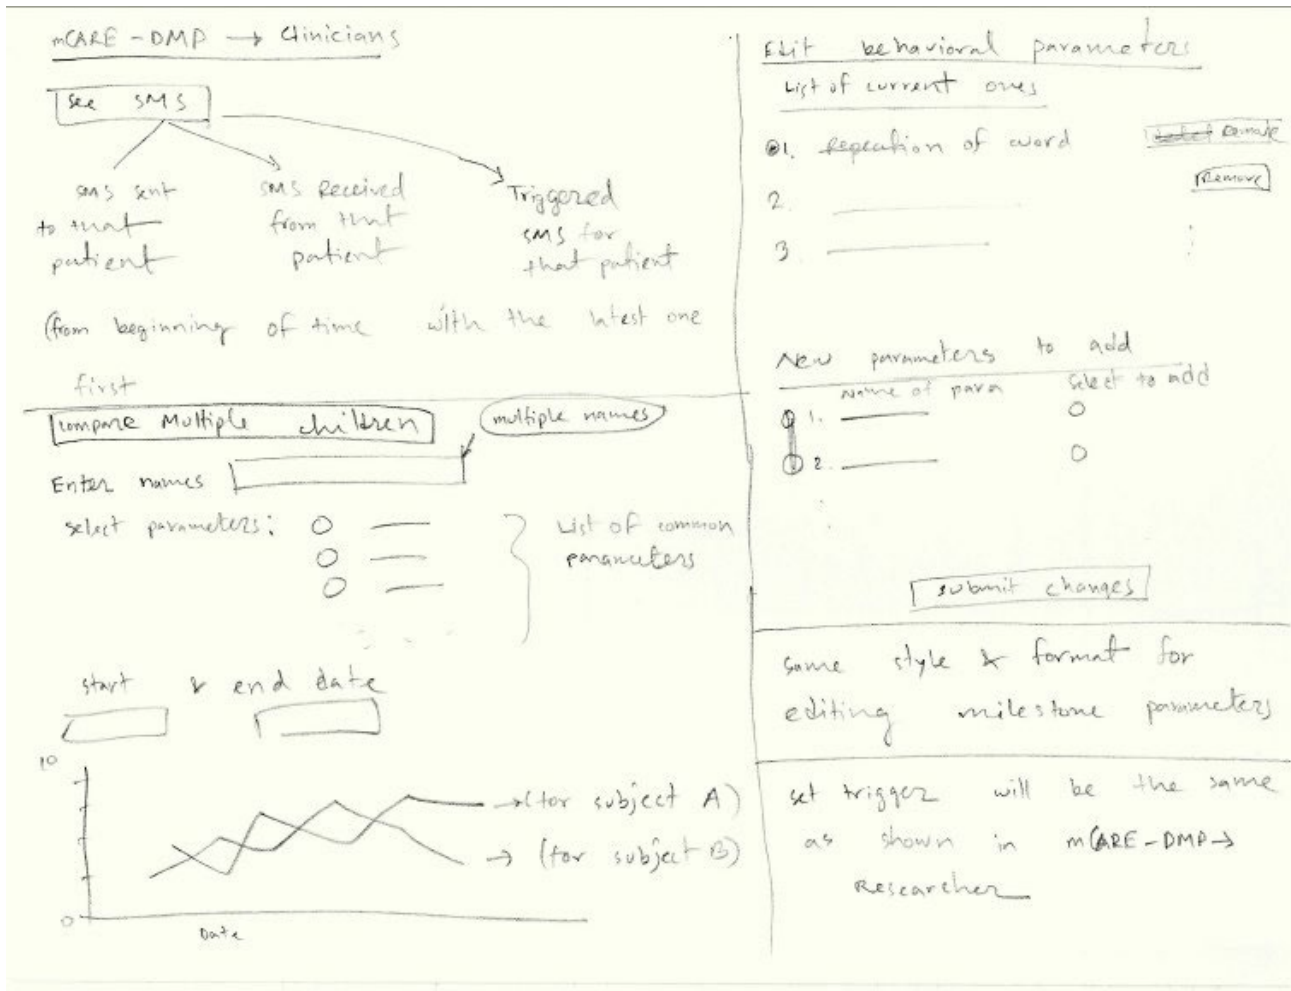 mCARE-DMP → Clinicians
See SMS
SMS sent
to that
patient
SMS Received
from that
patient
Triggered
SMS for
that patient
(from beginning of time with the latest one
first
Compare Multiple children
multiple names
Enter names
select parameters:
List of common
parameters
start & end date
10
0
Date
→ (for subject A)
→ (for subject B)
Edit behavioral parameters
List of current ones
1. Repeation of word
Remove
2.
Remove
3
New parameters to add
Name of para
Select to add
1.
2.
submit changes
same style & format for
editing milestone parameters
set trigger will be the same
as shown in mCARE-DMP→
Researcher